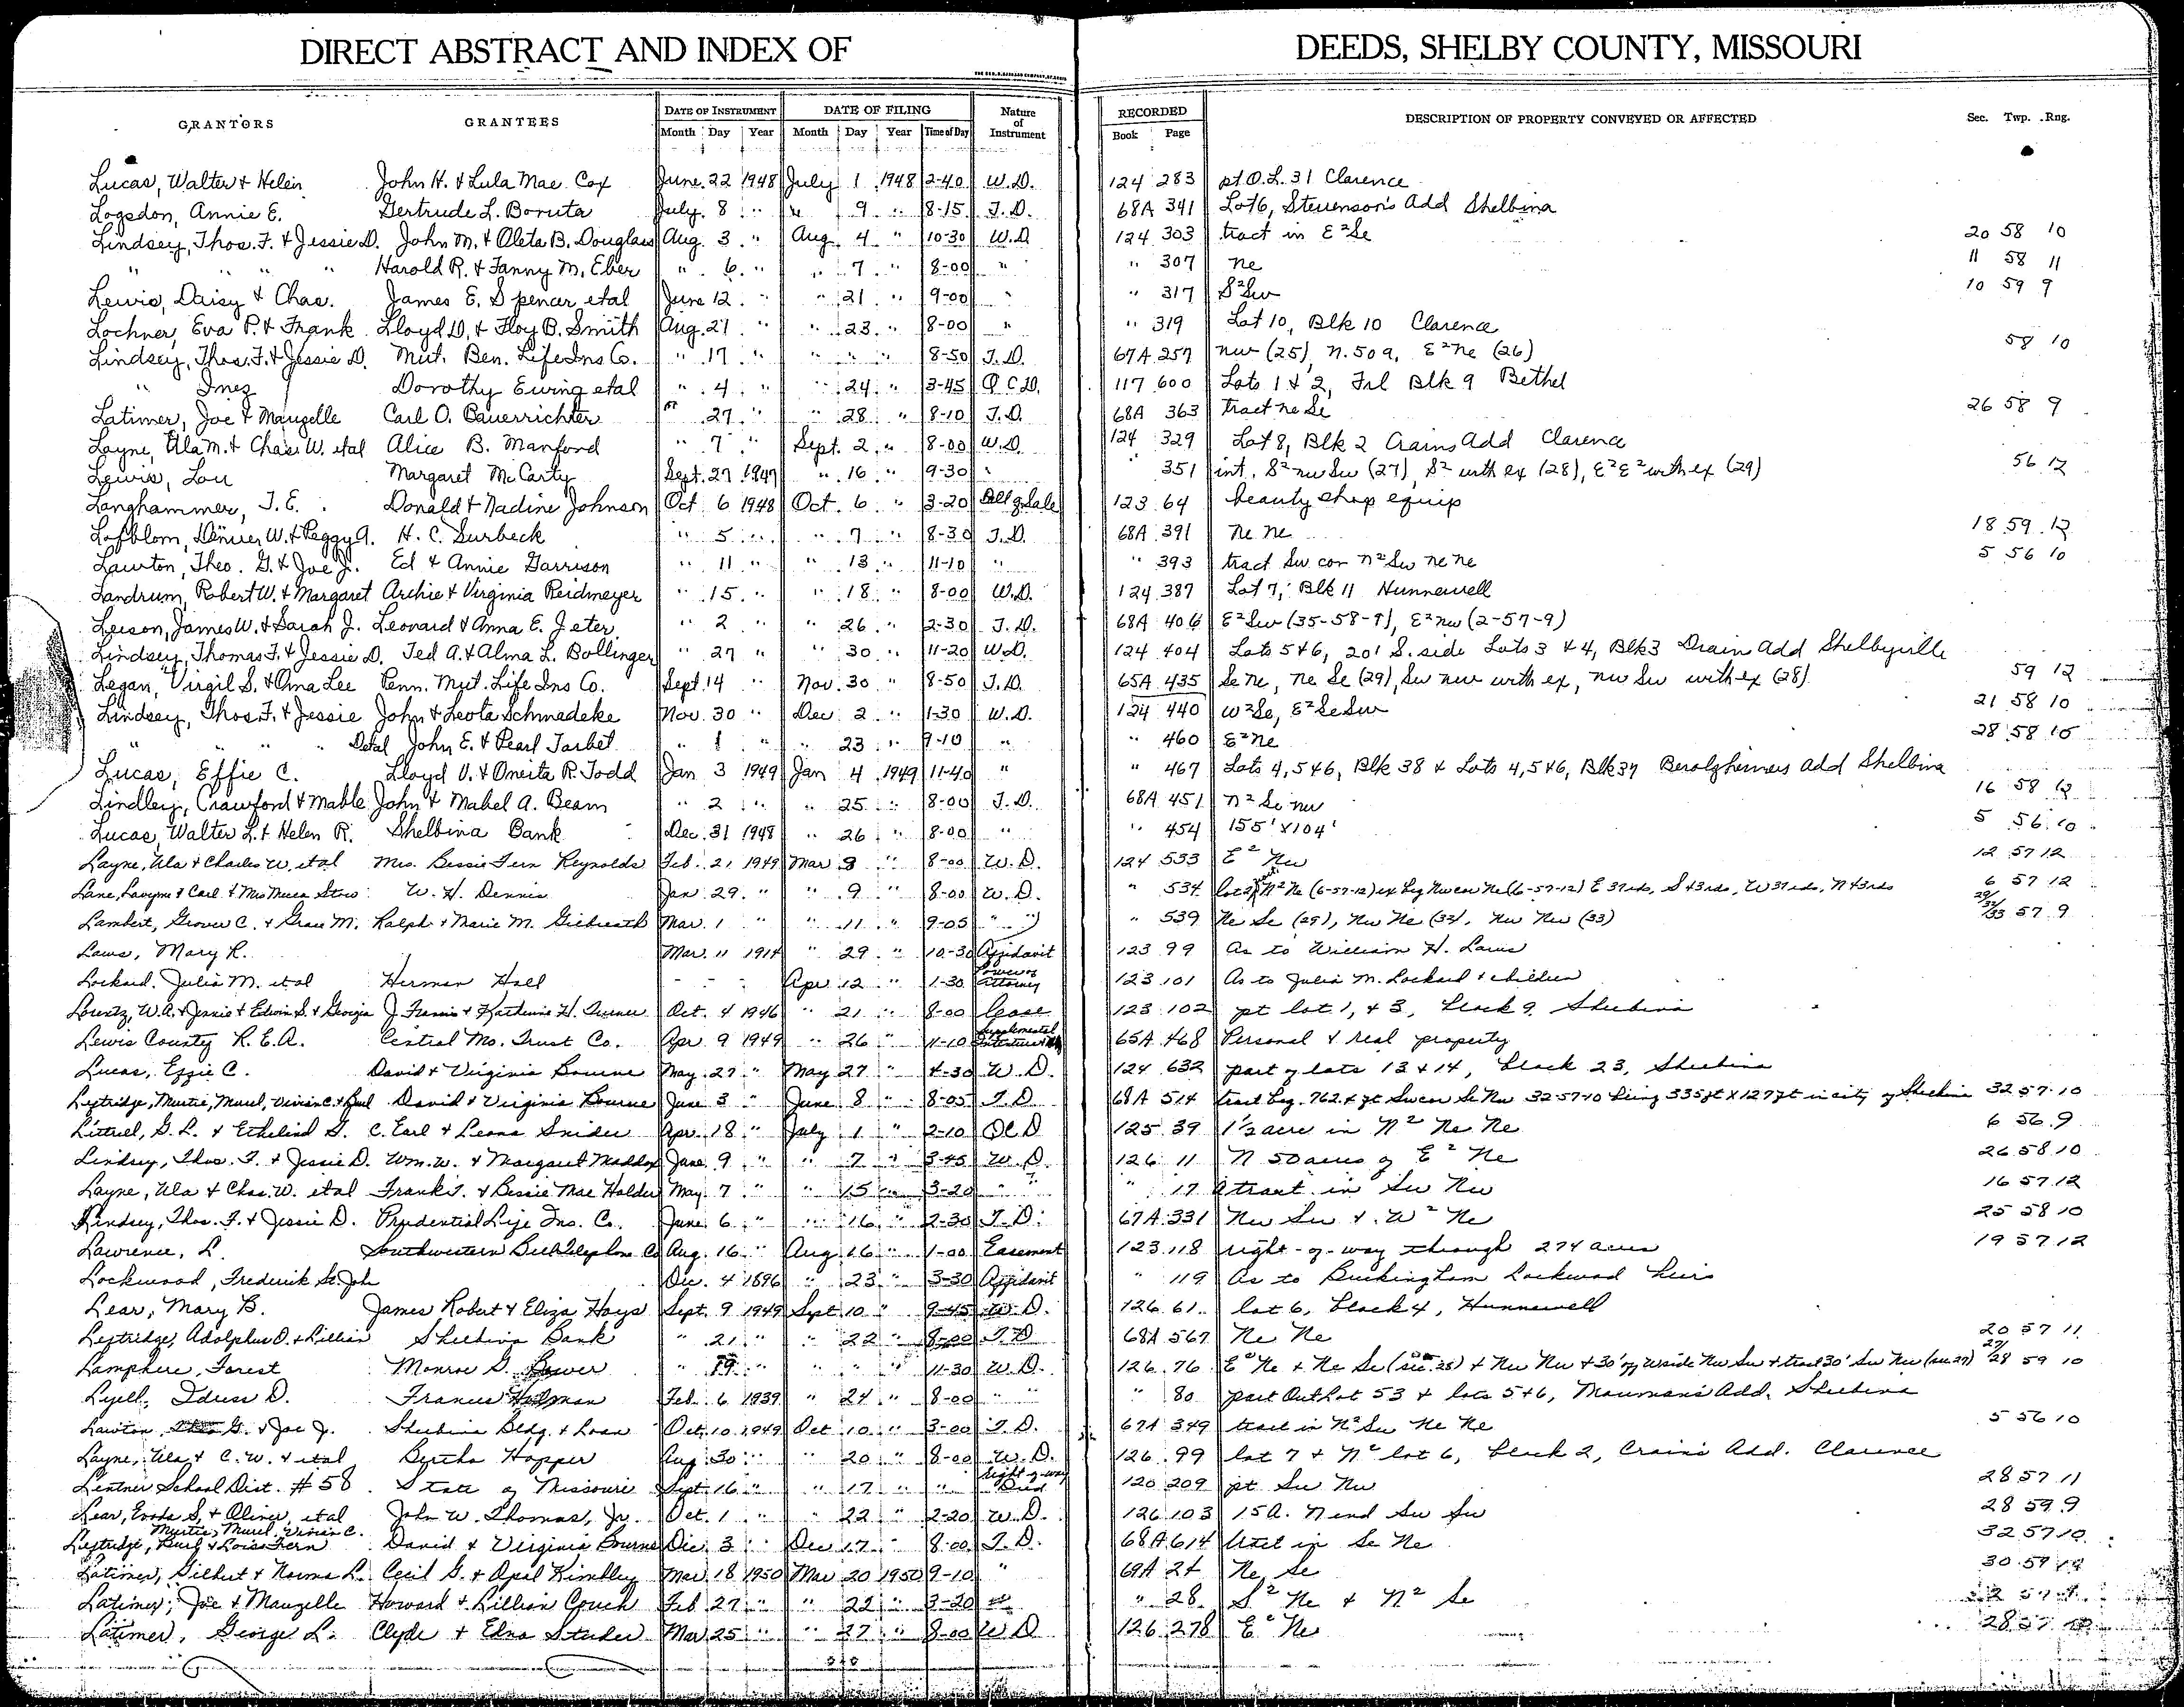 DIRECT ABSTRACT AND INDEX OF DEEDS, SHELBY COUNTY, MISSOURI
GRANTORS GRANTEES DATE OF INSTRUMENT DATE OF FILING Nature of Instrument RECORDED DESCRIPTION OF PROPERTY CONVEYED OR AFFECTED Sec. Twp. Rng.
Month Day Year Month Day Year Time of Day Book Page
Lucas, Walter & Helen John H. & Lula Mae Cox June 22 1948 July 1 1948 2-40 W.D. 124 283 pt O.L. 31 Clarence
Logsdon, Annie E. Gertrude L. Boruta July 8 " " 9 " 8-15 T.D. 68A 341 Lot 6, Stevenson's Add Shelbina
Lindsey, Thos. F. & Jessie D. John M. & Oleta B. Douglass Aug. 3 " Aug. 4 " 10-30 W.D 124 303 tract in E²Se 20 58 10
" " " Harold R. & Fanny M. Eber " 6 " " 7 " 8-00 " " 307 ne 11 58 11
Lewis, Daisy & Chas. James E. Spencer etal June 12 " " 21 " 9-00 " " 317 S²Sw 10 59 9
Lochner, Eva P. & Frank Lloyd D. & Floy B. Smith Aug. 21 " " 23 " 8-00 " " 319 Lot 10, Blk 10 Clarence
Lindsey, Thos. F. & Jessie D. Mut. Ben. Life Ins Co. " 17 " " " " 8-50 T.D. 67A 257 nw (25), N. 50a, E²ne (26) 58 10
" Inez Dorothy Ewing etal " 4 " " 24 " 3-45 Q C D. 117 600 Lots 1 & 2, Frl Blk 9 Bethel
Latimer, Joe & Mauzelle Carl O. Bauerrichter " 27 " " 28 " 8-10 T.D. 68A 363 tract ne Se 26 58 9
Layne, Ula M. & Chas. W. etal Alice B. Manford " 7 " Sept. 2 " 8-00 W.D. 124 329 Lot 8, Blk 2 Crains Add Clarence
Lewis, Lou Margaret McCarty Sept. 27 1947 " 16 " 9-30 " 351 int. S²nwSw (27), S² with ex (28), E²E² with ex (29) 56 12
Langhammer, T. E. Donald & Nadine Johnson Oct 6 1948 Oct. 6 " 3-20 Bill of Sale 123 64 beauty shop equip
Lofblom, Denver W. & Peggy A. H. C. Surbeck " 5 " " 7 " 8-30 T.D. 68A 391 ne ne 18 59 12
Lawton, Theo. G. & Joe J. Ed & Annie Garrison " 11 " " 13 " 11-10 " " 393 tract Sw cor N²Sw ne ne 5 56 10
Landrum, Robert W. & Margaret Archie & Virginia Reidmeyer " 15 " " 18 " 8-00 W.D. 124 387 Lot 7, Blk 11 Hunnewell
Leison, James W. & Sarah J. Leonard & Anna E. Jeter " 2 " " 26 " 2-30 T.D. 68A 406 E²Sw (35-58-9), E²nw (2-57-9)
Lindsey, Thomas F. & Jessie D. Ted A. & Alma L. Bollinger " 27 " " 30 " 11-20 W.D. 124 404 Lots 5 & 6, 201 S. side Lots 3 & 4, Blk 3 Drain Add Shelbyville
Legan, Virgil S. & Oma Lee Penn. Mut. Life Ins Co. Sept. 14 " Nov. 30 " 8-50 T.D. 65A 435 Se ne, ne Se (29), Sw nw with ex, nw Sw with ex (28) 59 12
Lindsey, Thos. F. & Jessie John & Leota Schmadeke Nov. 30 " Dec 2 " 1-30 W.D. 124 440 W²Se, E²SeSw 21 58 10
" " " D etal John E. & Pearl Tarbet " 1 " " 23 " 9-10 " " 460 E²ne 28 58 10
Lucas, Effie C. Lloyd V. & Oneita R. Todd Jan 3 1949 Jan 4 1949 11-40 " " 467 Lots 4, 5 & 6, Blk 38 & Lots 4, 5 & 6, Blk 39 Berolzheimers Add Shelbina
Lindley, Crawford & Mable John & Mabel A. Beam " 2 " " 25 " 8-00 T.D. 68A 451 N² Se nw 16 58 12
Lucas, Walter L. & Helen R. Shelbina Bank Dec. 31 1948 " 26 " 8-00 " " 454 155' x 104' 5 56 10
Layne, Ula & Charles W. etal Mrs. Bessie Fern Reynolds Feb. 21 1949 Mar 8 " 8-00 W.D. 124 533 E² Nw 12 57 12
Lane, Lavyne & Carl & Mrs W. H. Dennis Jan 29 " " 9 " 8-00 W.D. " 534 N² Ne (6-57-12) ex beg Nw cor Ne (6-57-12) E 37 rds, S 43 rds, W 37 rds, N 43 rds 6 57 12
Lambert, Grover C. & Grace M. Ralph & Marie M. Gilbreath Mar. 1 " " 11 " 9-05 " " " 539 Ne Se (29), Nw Ne (32), Nw Nw (33) 29/32/33 57 9
Laws, Mary R. Mar. 11 1914 " 29 " 10-30 Affidavit 123 99 As to William H. Laws
Lockard, Julia M. etal Herman Hall - - - Apr 12 " 1-30 Power of Attorney 123 101 As to Julia M. Lockard & children
W. A. & Jennie & Edwin S. & Georgia J. Francis & Katherine H. Oct. 4 1946 " 21 " 8-00 Lease 123 102 pt lot 1, & 3, block 9, Shelbina
Lewis County R.E.A. Central Mo. Trust Co. Apr 9 1949 " 26 " 11-10 Supplemental 65A 468 Personal & real property
Lucas, Effie C. David & Virginia Bourne May 27 " May 27 " 4-30 W.D. 124 632 part of lots 13 & 14, block 23, Shelbina
Leftridge, Myrtie, Murel, Vivian C. & Burl David & Virginia Bourne June 3 " June 8 " 8-05 T.D 68A 514 tract beg. 762.4 ft Sw cor Se Nw 32-57-10 being 335 ft x 127 ft in city of Shelbina 32 57 10
Littrell, G. L. & Ethelind G. C. Earl & Leona Snider Apr. 18 " July 1 " 2-10 QCD 125 39 1½ acre in N² Ne Ne 6 56 9
Lindsey, Thos. F. & Jessie D. Wm. W. & Margaret Maddox June 9 " " 7 " 3-45 W.D. 126 11 N 50 acres of E² Ne 26 58 10
Layne, Ula & Chas. W. etal Frank J. & Bessie Mae Holder May 7 " " 15 " 3-20 " " " 17 A tract in Sw Nw 16 57 12
Lindsey, Thos. F. & Jessie D. Prudential Life Ins. Co. June 6 " " 16 " 2-30 T.D. 67A 331 Nw Sw & W² Ne 25 58 10
Lawrence, L. Southwestern Bell Telephone Co Aug. 16 " Aug 16 " 1-00 Easement 123 118 right-of-way through 274 acres 19 57 12
Lockwood, Frederick St. John Dec. 4 1896 " 23 " 3-30 Affidavit " 119 As to Buckingham Lockwood heirs
Lear, Mary B. James Robert & Eliza Hays Sept. 9 1949 Sept 10 " 9-45 W.D. 126 61 lot 6, block 4, Hunnewell
Leftridge, Adolphus D. & Lillian Shelbina Bank " 21 " " 22 " 8-00 T.D 68A 567 Ne Ne 20 57 11
Lamphere, Forest Monroe D. Bower " 19 " " " " 11-30 W.D. 126 76 E² Ne & Ne Se (sec. 28) & Nw Nw & 30' off W side Nw Sw & tract 30' Sw Nw (sec 27) 27/28 59 10
Lyell, D. Francis Feb 6 1939 " 24 " 8-00 " " " 80 part Outlot 53 & lots 5 & 6, Add. Shelbina
Lawton, Theo G. & Joe J. Shelbina Bldg. & Loan Oct. 10 1949 Oct 10 " 3-00 T.D. 67A 349 tract in N² Sw Ne Ne 5 56 10
Layne, Ula & C. W. & etal Bertha Hopper Aug 30 " " 20 " 8-00 W.D. 126 99 lot 7 & N² lot 6, block 2, Crains Add. Clarence
Lentner School Dist. #58 State of Missouri Sept 16 " " 17 " " Right-of-way Deed 120 209 pt Sw Nw 28 57 11
Lear, S. & Oliver, etal John W. Thomas, Jr. Oct. 1 " " 22 " 2-20 W.D. 126 103 15a. N end Sw Sw 28 59 9
Myrtie, Murel, Vivian C.
Leftridge, Burl & Lois Fern David & Virginia Bourne Dec. 3 " Dec 17 " 8-00 T.D. 68A 614 in Se Ne 32 57 10
Latimer, Gilbert & Norma L. Cecil G. & Opal Kimbley Mar. 18 1950 Mar 20 1950 9-10 " 69A 24 Ne Se 30 59
Latimer, Joe & Mauzelle Howard & Lillian Couch Feb 27 " " 22 " 3-20 " 28 S² Ne & N² Se 2 57
Latimer, George L. Clyde & Edna Mar 25 " " 27 " 8-00 W D 126 278 E² Ne 28 57